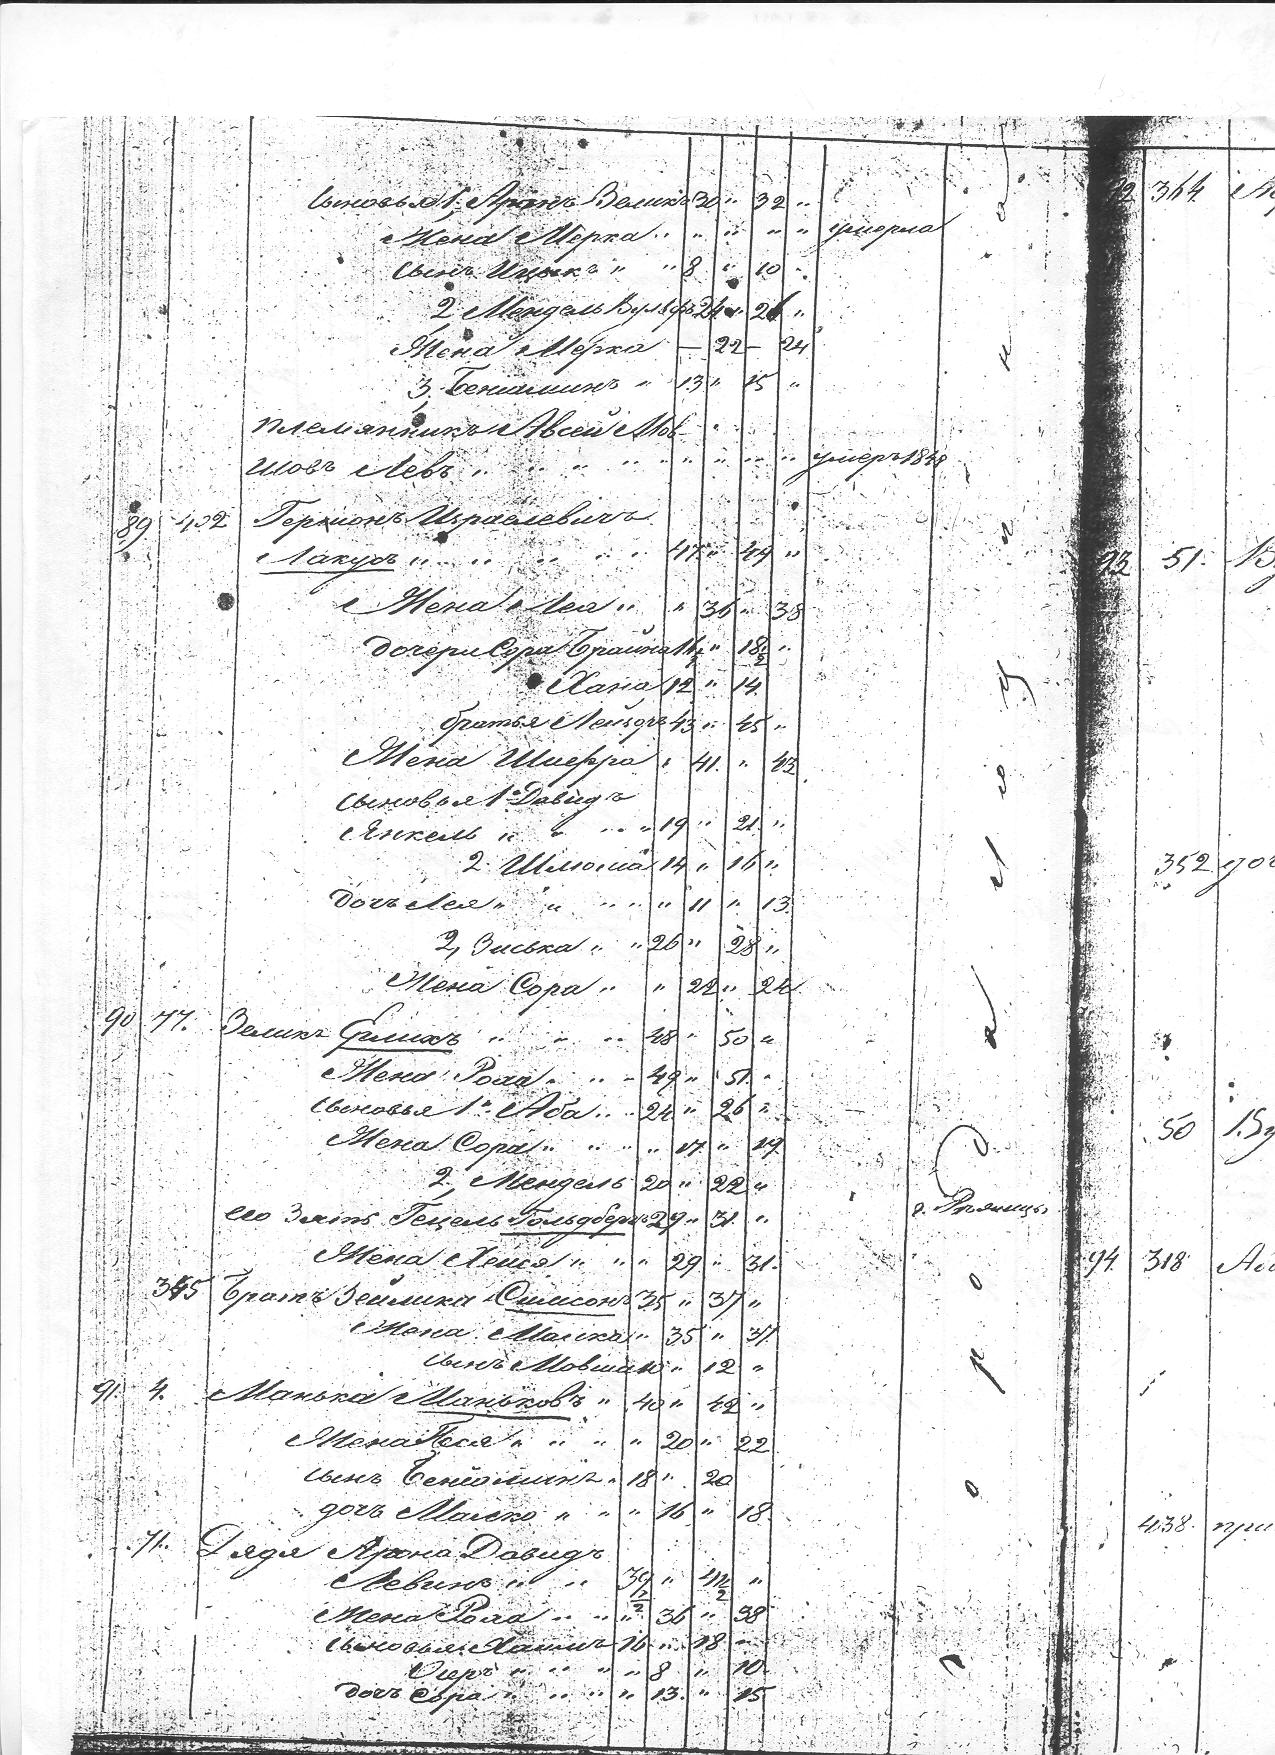 сыновья 1, Аронъ Зеликъ 30 " 32 "
Жена Мерка " " " " " умерла
сынъ Ицыкъ " " 8 " 10 "
2 Мендель Вульфъ 24 " 26 "
Жена Мерка — 22 — 24
3, Бениаминъ " 13 " 15 "
племянникъ Авсей Мов
шовъ Левъ " " " " " " " " " умеръ 1848
89 402 Гершонъ Израелевичъ
Лакусъ " " " " " " 47 " 49 "
Жена Лея " " 36 " 38
дочери Сора Брайна 16 1/2 " 18 1/2 "
Хана 12 " 14
братья Лейбъ 43 " 45 "
Жена Шифра " 41 " 43
сыновья 1. Давидъ
Янкель " " " " 19 " 21 "
2 Шлиома 14 " 16 "
дочь Лея " " " " " 11 " 13
2, Зиська " " 26 " 28 "
Жена Сора " " 22 " 24
90 77. Зеликъ Ерлихъ " " " 48 " 50 "
Жена Рола " " - 49 " 51 "
сыновья 1. Аба " " 24 " 26 "
Жена Сора " " " " 17 " 19
2, Мендель 20 " 22 "
его Зять Гецель Гольдбергъ 29 " 31 "
Жена Хейся " " " 29 " 31
345 Братъ Зейлика Симсонъ 35 " 37 "
Жена Малка " 35 " 37
сынъ Мовша 10 " 12 "
91. 4. Манька Маньковъ " 40 " 42 "
Жена Песя " " " " 20 " 22
сынъ Бениоминъ " 18 " 20
дочь Малка " " " 16 " 18
71. Дядя Арона Давидъ
Левинъ " " 39 1/2 " 41 1/2 "
Жена Рола " " " 36 " 38
сыновья Хаимъ 16 " 18 "
Ошеръ " " " " 8 " 10
дочь Сора " " " " 13 " 15
92 364
93 51.
352 доч
50
94 318
438. при